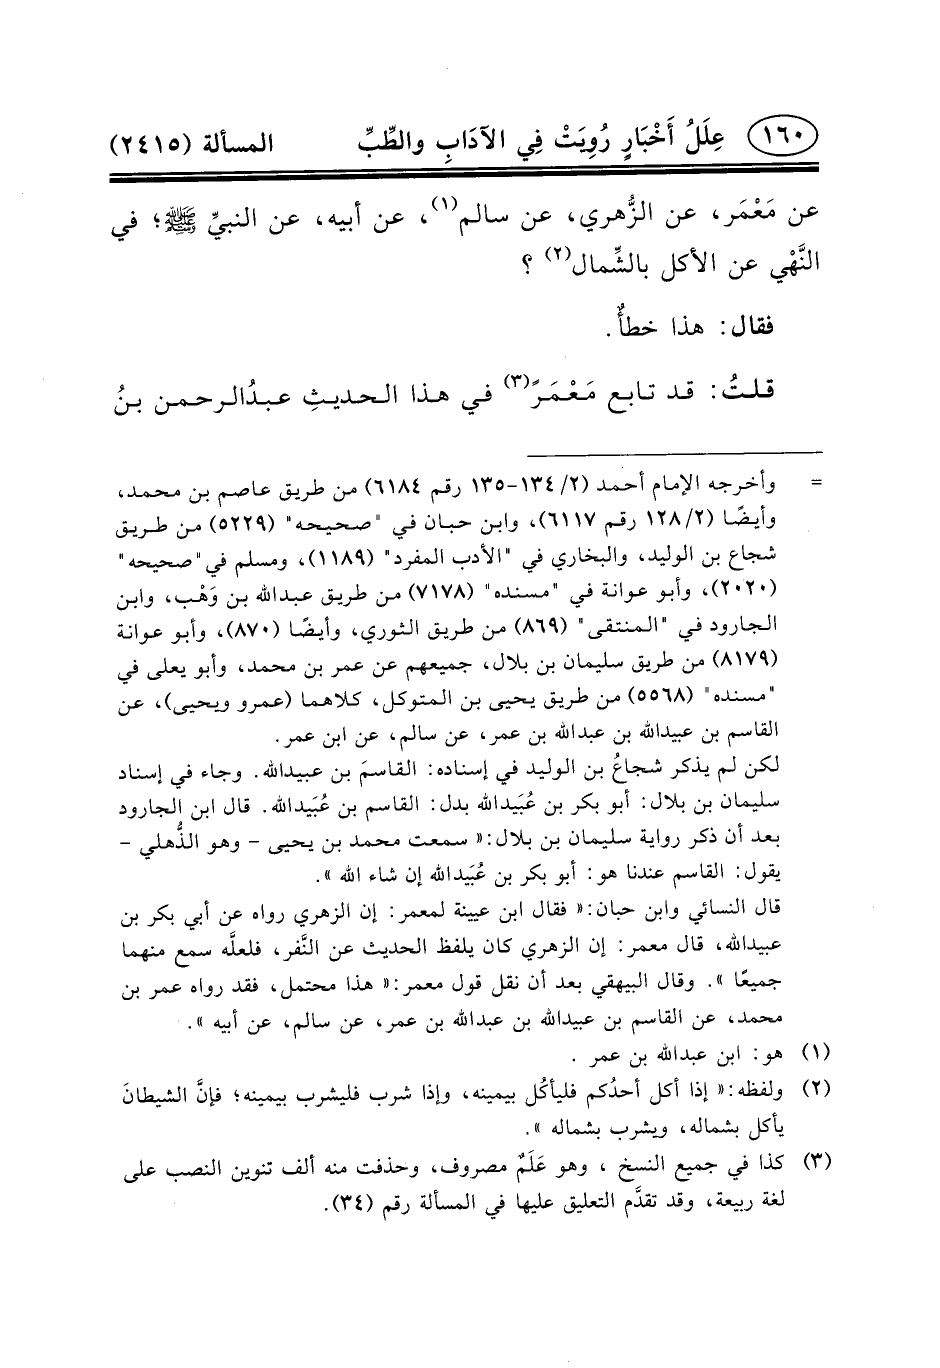 ١٦٠ عِلَلُ أَخْبَارٍ رُوِيَتْ فِي الآدَابِ والطِّبِّ المسألة (٢٤١٥)
عن مَعْمَر، عن الزُّهري، عن سالم(١)، عن أبيه، عن النبيِّ ﷺ؛ في
النَّهْي عن الأكل بالشِّمال(٢) ؟
فقال: هذا خطأٌ.
قلتُ: قد تابع مَعْمَرً(٣) في هذا الحديثِ عبدُالرحمن بنُ
= وأخرجه الإمام أحمد (٢/ ١٣٤-١٣٥ رقم ٦١٨٤) من طريق عاصم بن محمد،
وأيضًا (٢/ ١٢٨ رقم ٦١١٧)، وابن حبان في "صحيحه" (٥٢٢٩) من طريق
شجاع بن الوليد، والبخاري في "الأدب المفرد" (١١٨٩)، ومسلم في "صحيحه"
(٢٠٢٠)، وأبو عوانة في "مسنده" (٧١٧٨) من طريق عبدالله بن وَهْب، وابن
الجارود في "المنتقى" (٨٦٩) من طريق الثوري، وأيضًا (٨٧٠)، وأبو عوانة
(٨١٧٩) من طريق سليمان بن بلال، جميعهم عن عمر بن محمد، وأبو يعلى في
"مسنده" (٥٥٦٨) من طريق يحيى بن المتوكل، كلاهما (عمرو ويحيى)، عن
القاسم بن عبيدالله بن عبدالله بن عمر، عن سالم، عن ابن عمر.
لكن لم يذكر شجاعُ بن الوليد في إسناده: القاسمَ بن عبيدالله. وجاء في إسناد
سليمان بن بلال: أبو بكر بن عُبَيدالله بدل: القاسم بن عُبَيدالله. قال ابن الجارود
بعد أن ذكر رواية سليمان بن بلال:« سمعت محمد بن يحيى - وهو الذُّهلي -
يقول: القاسم عندنا هو: أبو بكر بن عُبَيدالله إن شاء الله ».
قال النسائي وابن حبان:« فقال ابن عيينة لمعمر: إن الزهري رواه عن أبي بكر بن
عبيدالله، قال معمر: إن الزهري كان يلفظ الحديث عن النَّفر، فلعلَّه سمع منهما
جميعًا ». وقال البيهقي بعد أن نقل قول معمر:« هذا محتمل، فقد رواه عمر بن
محمد، عن القاسم بن عبيدالله بن عبدالله بن عمر، عن سالم، عن أبيه ».
(١) هو: ابن عبدالله بن عمر .
(٢) ولفظه:« إذا أكل أحدُكم فليأكُل بيمينه، وإذا شرب فليشرب بيمينه؛ فإنَّ الشيطانَ
يأكل بشماله، ويشرب بشماله ».
(٣) كذا في جميع النسخ ، وهو عَلَمٌ مصروف، وحذفت منه ألف تنوين النصب على
لغة ربيعة، وقد تقدَّم التعليق عليها في المسألة رقم (٣٤).